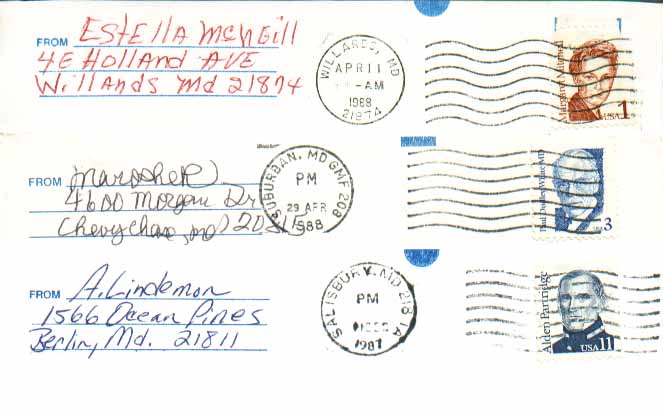 FROM Estella McNeill
4E Holland Ave
Willards Md 21874
WILLARDS, MD
APR 11
-AM
1988
21874
Margaret Mitchell
1
USA 1
FROM
4600 Morgan Dr
Chevy Chase, MD 20815
SUBURBAN, MD GMF 208
PM
29 APR
1988
Paul Dudley White MD
USA 3
FROM A. Lindemon
1566 Ocean Pines
Berlin, Md. 21811
SALISBURY, MD 218
A
PM
DEC
1987
Alden Partridge
USA 11